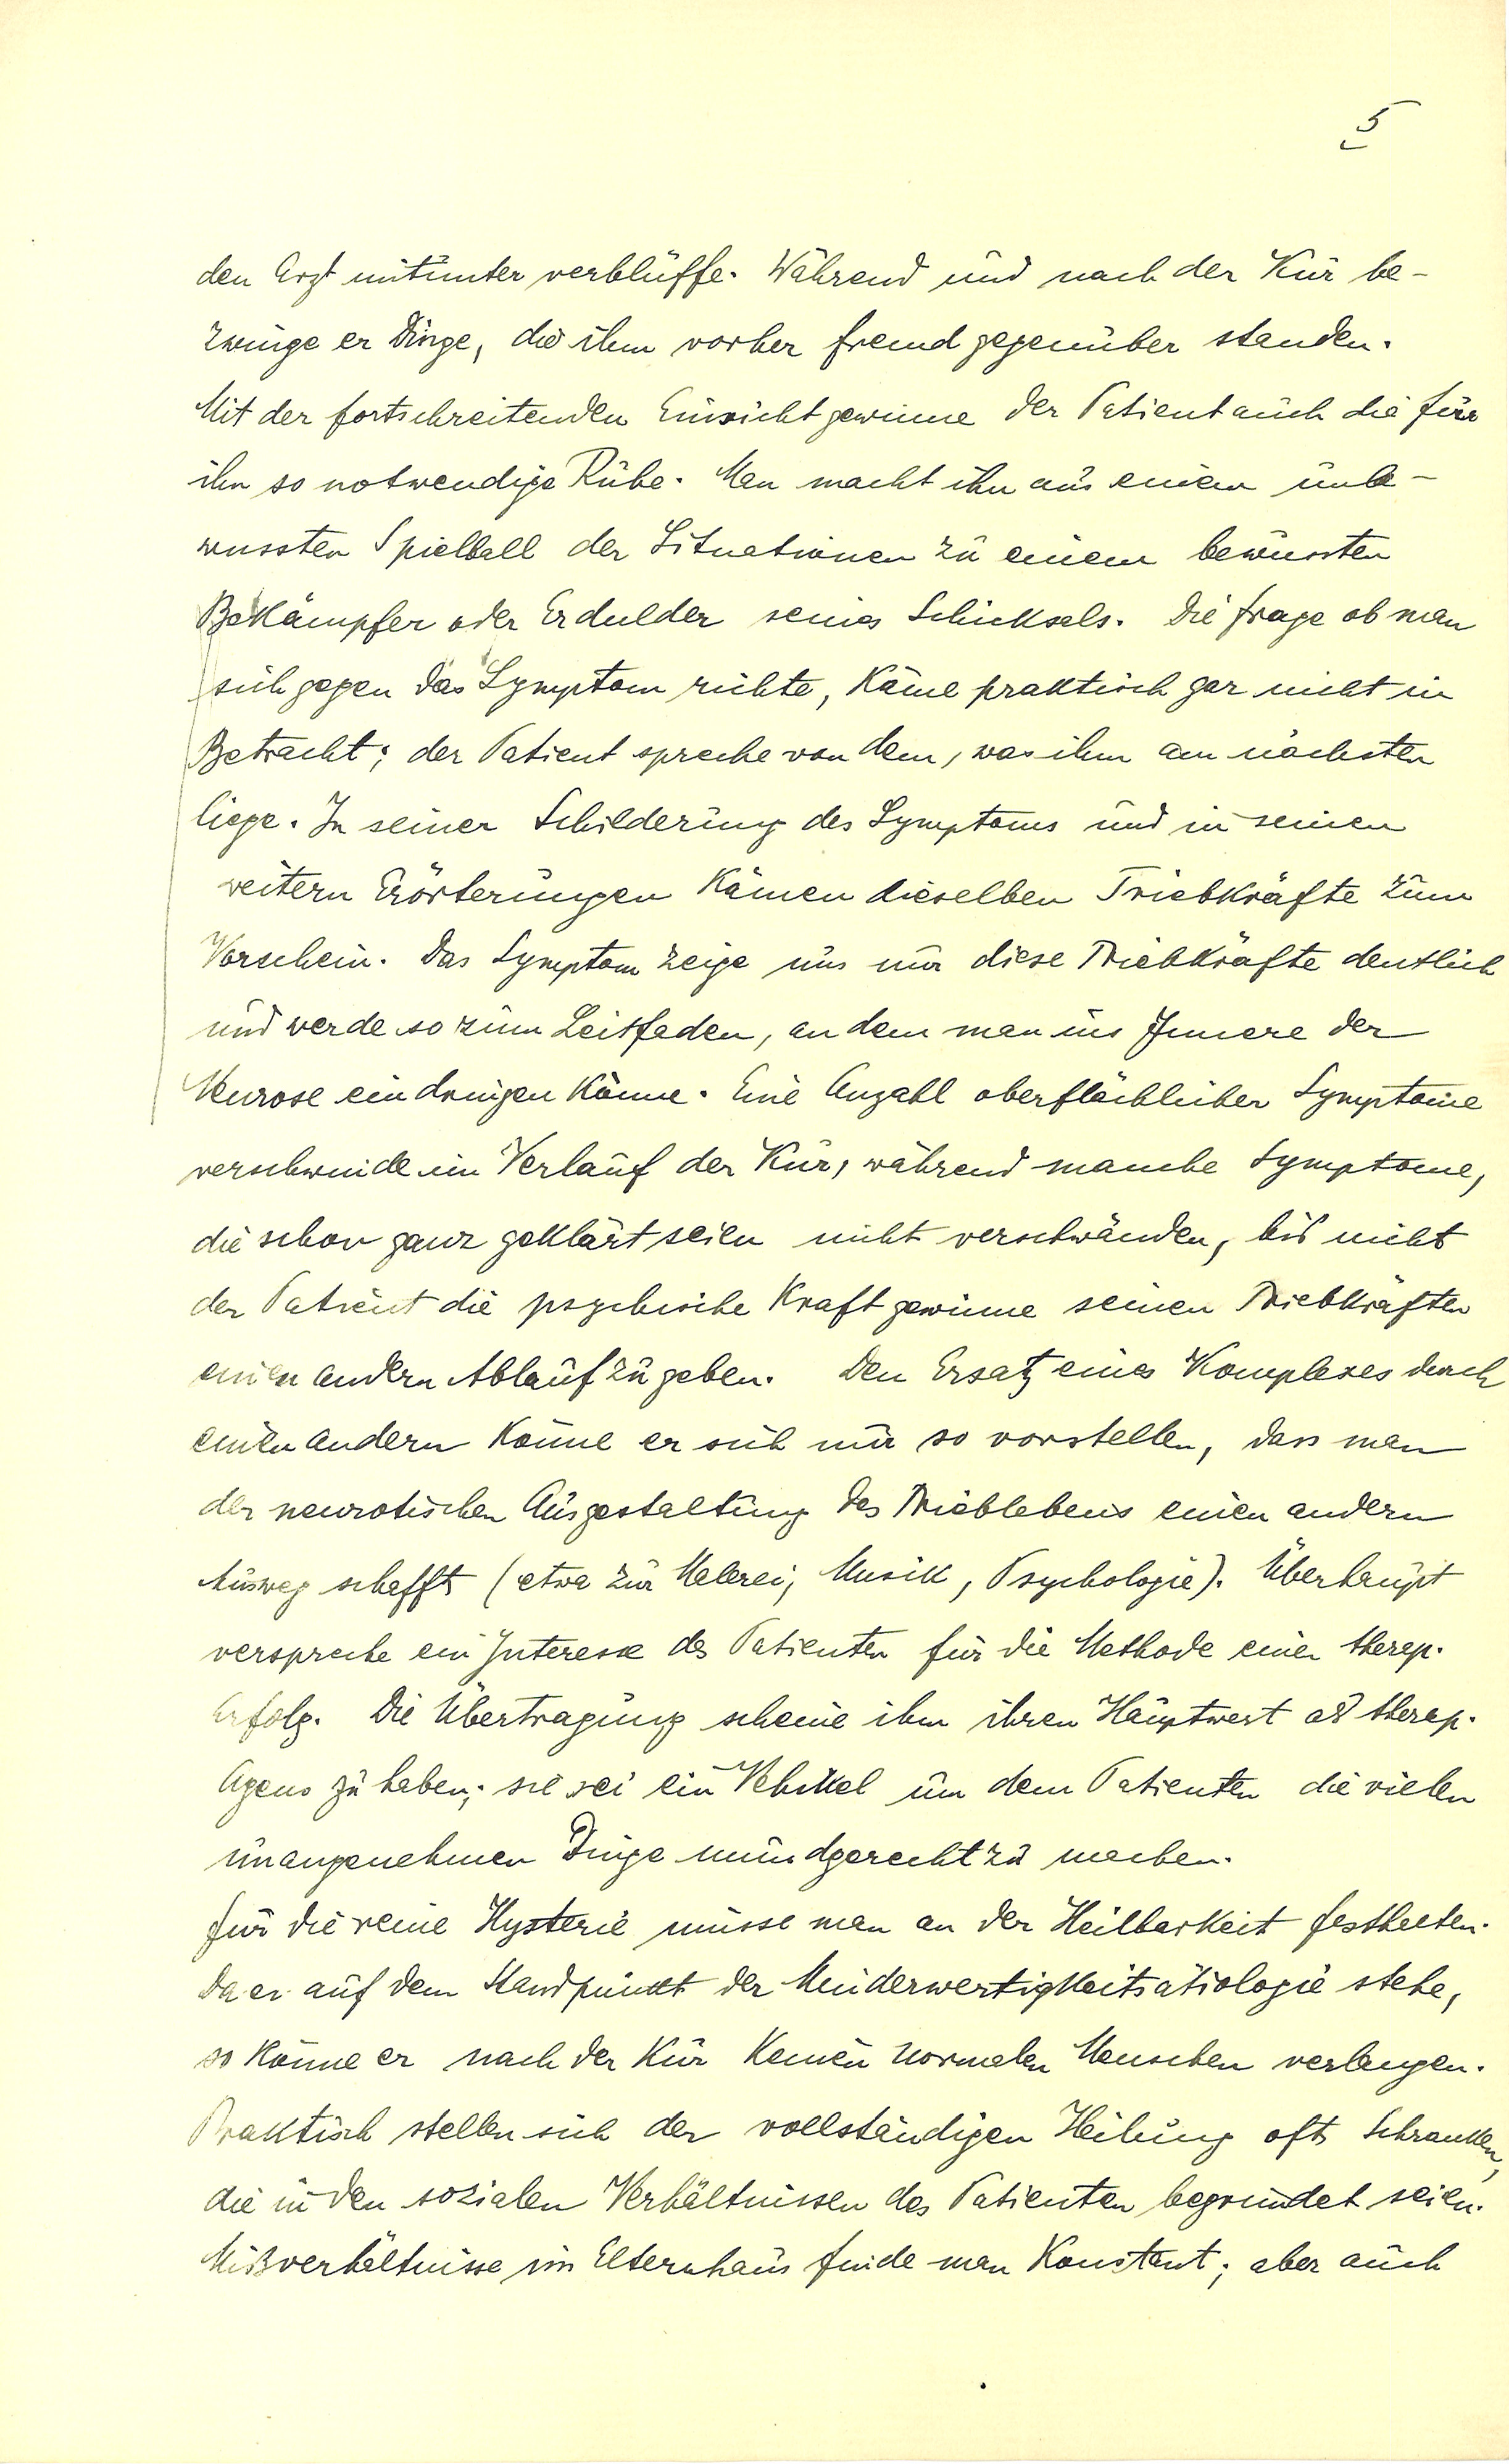 5
den Arzt mitunter verblüffe. Während und nach der Kur be-
zwinge er Dinge, die ihm vorher fremd gegenüber standen.
Mit der fortschreitenden Einsicht gewinne der Patient auch die für
ihn so notwendige Ruhe. Man macht ihn aus einem unbe-
wussten Spielball der Situationen zu einem bewussten
Bekämpfer oder Erdulder seines Schicksals. Die Frage ob man
sich gegen das Symptom richte, käme praktisch gar nicht in
Betracht; der Patient spreche von dem, was ihm am nächsten
liege. In seiner Schilderung des Symptoms und in seinen
weitern Erörterungen kämen dieselben Triebkräfte zum
Vorschein. Das Symptom zeige uns nur diese Triebkräfte deutlich
und werde so zum Leitfaden, an dem man ins Innere der
Neurose eindringen könne. Eine Anzahl oberflächlicher Symptome
verschwinde im Verlauf der Kur, während manche Symptome,
die schon ganz geklärt seien nicht verschwänden, bis nicht
der Patient die psychische Kraft gewinne seinen Triebkräften
einen andern Ablauf zu geben. Den Ersatz eines Komplexes durch
einen andern könne er sich nur so vorstellen, dass man
der neurotischen Ausgestaltung des Trieblebens einen andern
Ausweg schafft (etwa zur Malerei, Musik, Psychologie). Überhaupt
verspreche ein Interesse des Patienten für die Methode einen therap.
Erfolg. Die Übertragung scheine ihm ihren Hauptwert als therap.
Agens zu haben; sie sei ein Vehikel um dem Patienten die vielen
unangenehmen Dinge mundgerecht zu machen.
Für die reine Hysterie müsse man an der Heilbarkeit festhalten.
Da er auf dem Standpunkt der Minderwertigkeitsätiologie stehe,
so könne er nach der Kur keinen normalen Menschen verlangen.
Praktisch stellen sich der vollständigen Heilung oft Schranken,
die in den sozialen Verhältnissen des Patienten begründet seien.
Mißverhältnisse im Elternhaus finde man konstant; aber auch